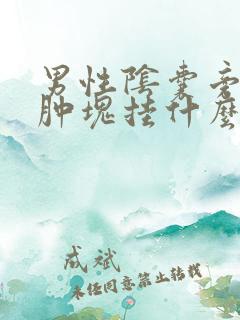 男性陰囊旁
肿塊挂什麽
成斌
未经同意禁止转载